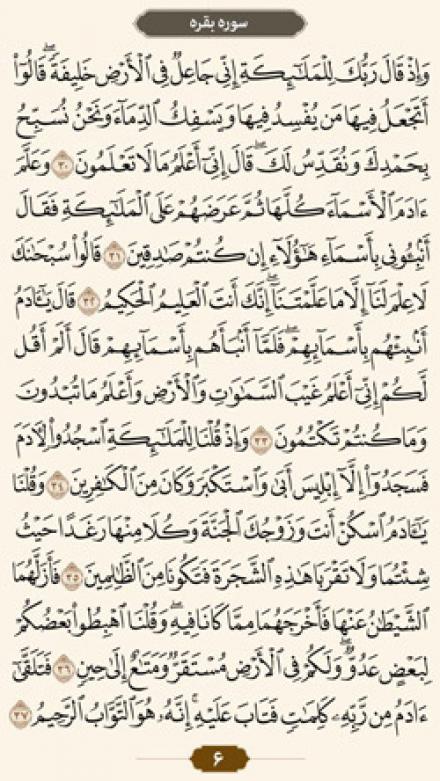 سوره بقره
وَإِذْ قَالَ رَبُّكَ لِلْمَلَـٰٓئِكَةِ إِنِّي جَاعِلٌ فِي ٱلْأَرْضِ خَلِيفَةً ۖ قَالُوٓا۟
أَتَجْعَلُ فِيهَا مَن يُفْسِدُ فِيهَا وَيَسْفِكُ ٱلدِّمَآءَ وَنَحْنُ نُسَبِّحُ
بِحَمْدِكَ وَنُقَدِّسُ لَكَ ۖ قَالَ إِنِّيٓ أَعْلَمُ مَا لَا تَعْلَمُونَ ﴿٣٠﴾ وَعَلَّمَ
ءَادَمَ ٱلْأَسْمَآءَ كُلَّهَا ثُمَّ عَرَضَهُمْ عَلَى ٱلْمَلَـٰٓئِكَةِ فَقَالَ
أَنۢبِـُٔونِي بِأَسْمَآءِ هَـٰٓؤُلَآءِ إِن كُنتُمْ صَـٰدِقِينَ ﴿٣١﴾ قَالُوا۟ سُبْحَـٰنَكَ
لَا عِلْمَ لَنَآ إِلَّا مَا عَلَّمْتَنَآ ۖ إِنَّكَ أَنتَ ٱلْعَلِيمُ ٱلْحَكِيمُ ﴿٣٢﴾ قَالَ يَـٰٓـَٔادَمُ
أَنۢبِئْهُم بِأَسْمَآئِهِمْ ۖ فَلَمَّآ أَنۢبَأَهُم بِأَسْمَآئِهِمْ قَالَ أَلَمْ أَقُل
لَّكُمْ إِنِّيٓ أَعْلَمُ غَيْبَ ٱلسَّمَـٰوَٰتِ وَٱلْأَرْضِ وَأَعْلَمُ مَا تُبْدُونَ
وَمَا كُنتُمْ تَكْتُمُونَ ﴿٣٣﴾ وَإِذْ قُلْنَا لِلْمَلَـٰٓئِكَةِ ٱسْجُدُوا۟ لِـَٔادَمَ
فَسَجَدُوٓا۟ إِلَّآ إِبْلِيسَ أَبَىٰ وَٱسْتَكْبَرَ وَكَانَ مِنَ ٱلْكَـٰفِرِينَ ﴿٣٤﴾ وَقُلْنَا
يَـٰٓـَٔادَمُ ٱسْكُنْ أَنتَ وَزَوْجُكَ ٱلْجَنَّةَ وَكُلَا مِنْهَا رَغَدًا حَيْثُ
شِئْتُمَا وَلَا تَقْرَبَا هَـٰذِهِ ٱلشَّجَرَةَ فَتَكُونَا مِنَ ٱلظَّـٰلِمِينَ ﴿٣٥﴾ فَأَزَلَّهُمَا
ٱلشَّيْطَـٰنُ عَنْهَا فَأَخْرَجَهُمَا مِمَّا كَانَا فِيهِ ۖ وَقُلْنَا ٱهْبِطُوا۟ بَعْضُكُمْ
لِبَعْضٍ عَدُوٌّ ۖ وَلَكُمْ فِي ٱلْأَرْضِ مُسْتَقَرٌّ وَمَتَـٰعٌ إِلَىٰ حِينٍ ﴿٣٦﴾ فَتَلَقَّىٰٓ
ءَادَمُ مِن رَّبِّهِۦ كَلِمَـٰتٍ فَتَابَ عَلَيْهِ ۚ إِنَّهُۥ هُوَ ٱلتَّوَّابُ ٱلرَّحِيمُ ﴿٣٧﴾
۶